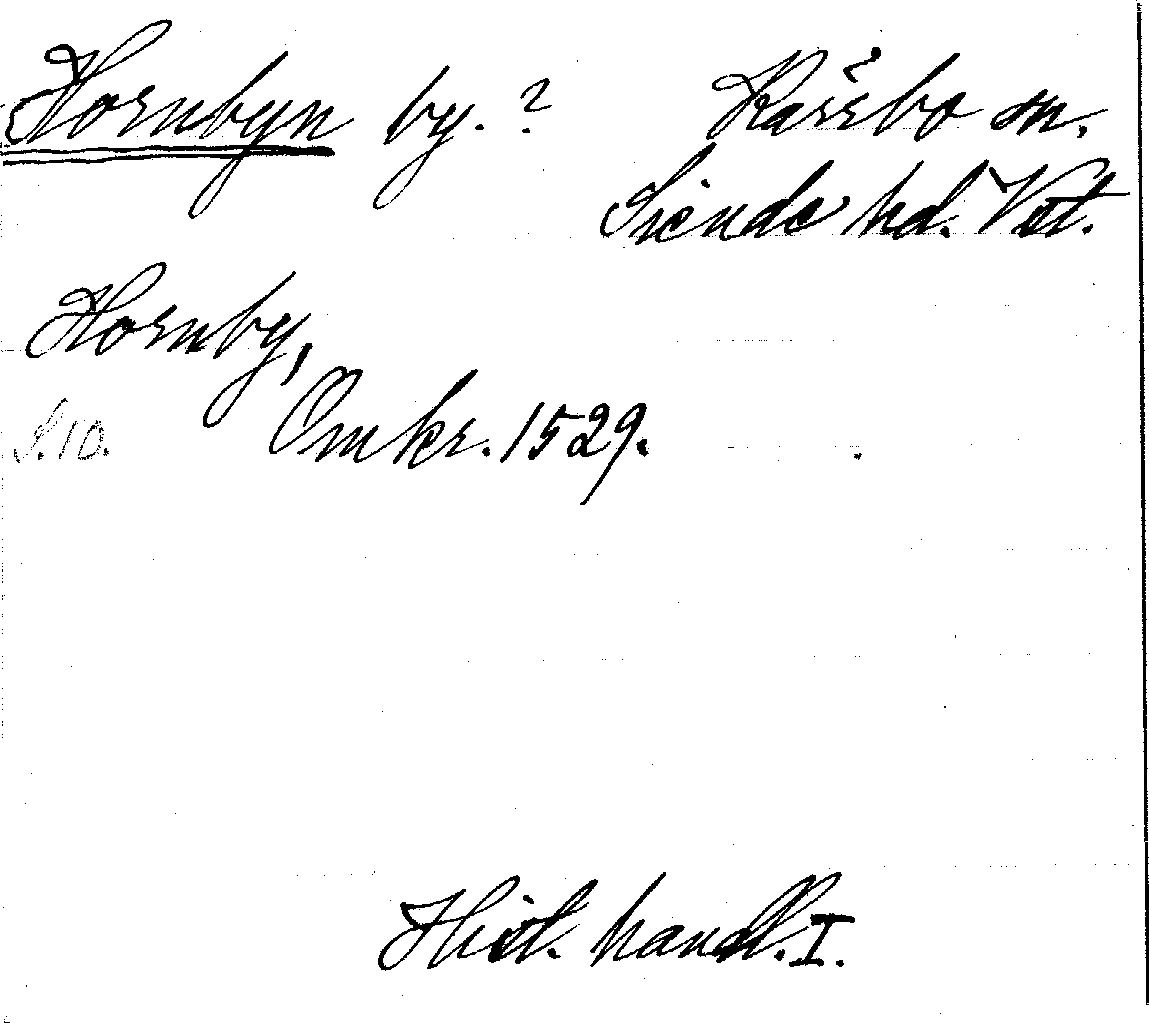 Hornbyn by.? Kärrbo sn.
Siende hd. Vst.
Hornby,
S.10. Omkr. 1529.
Hist. handl. I.